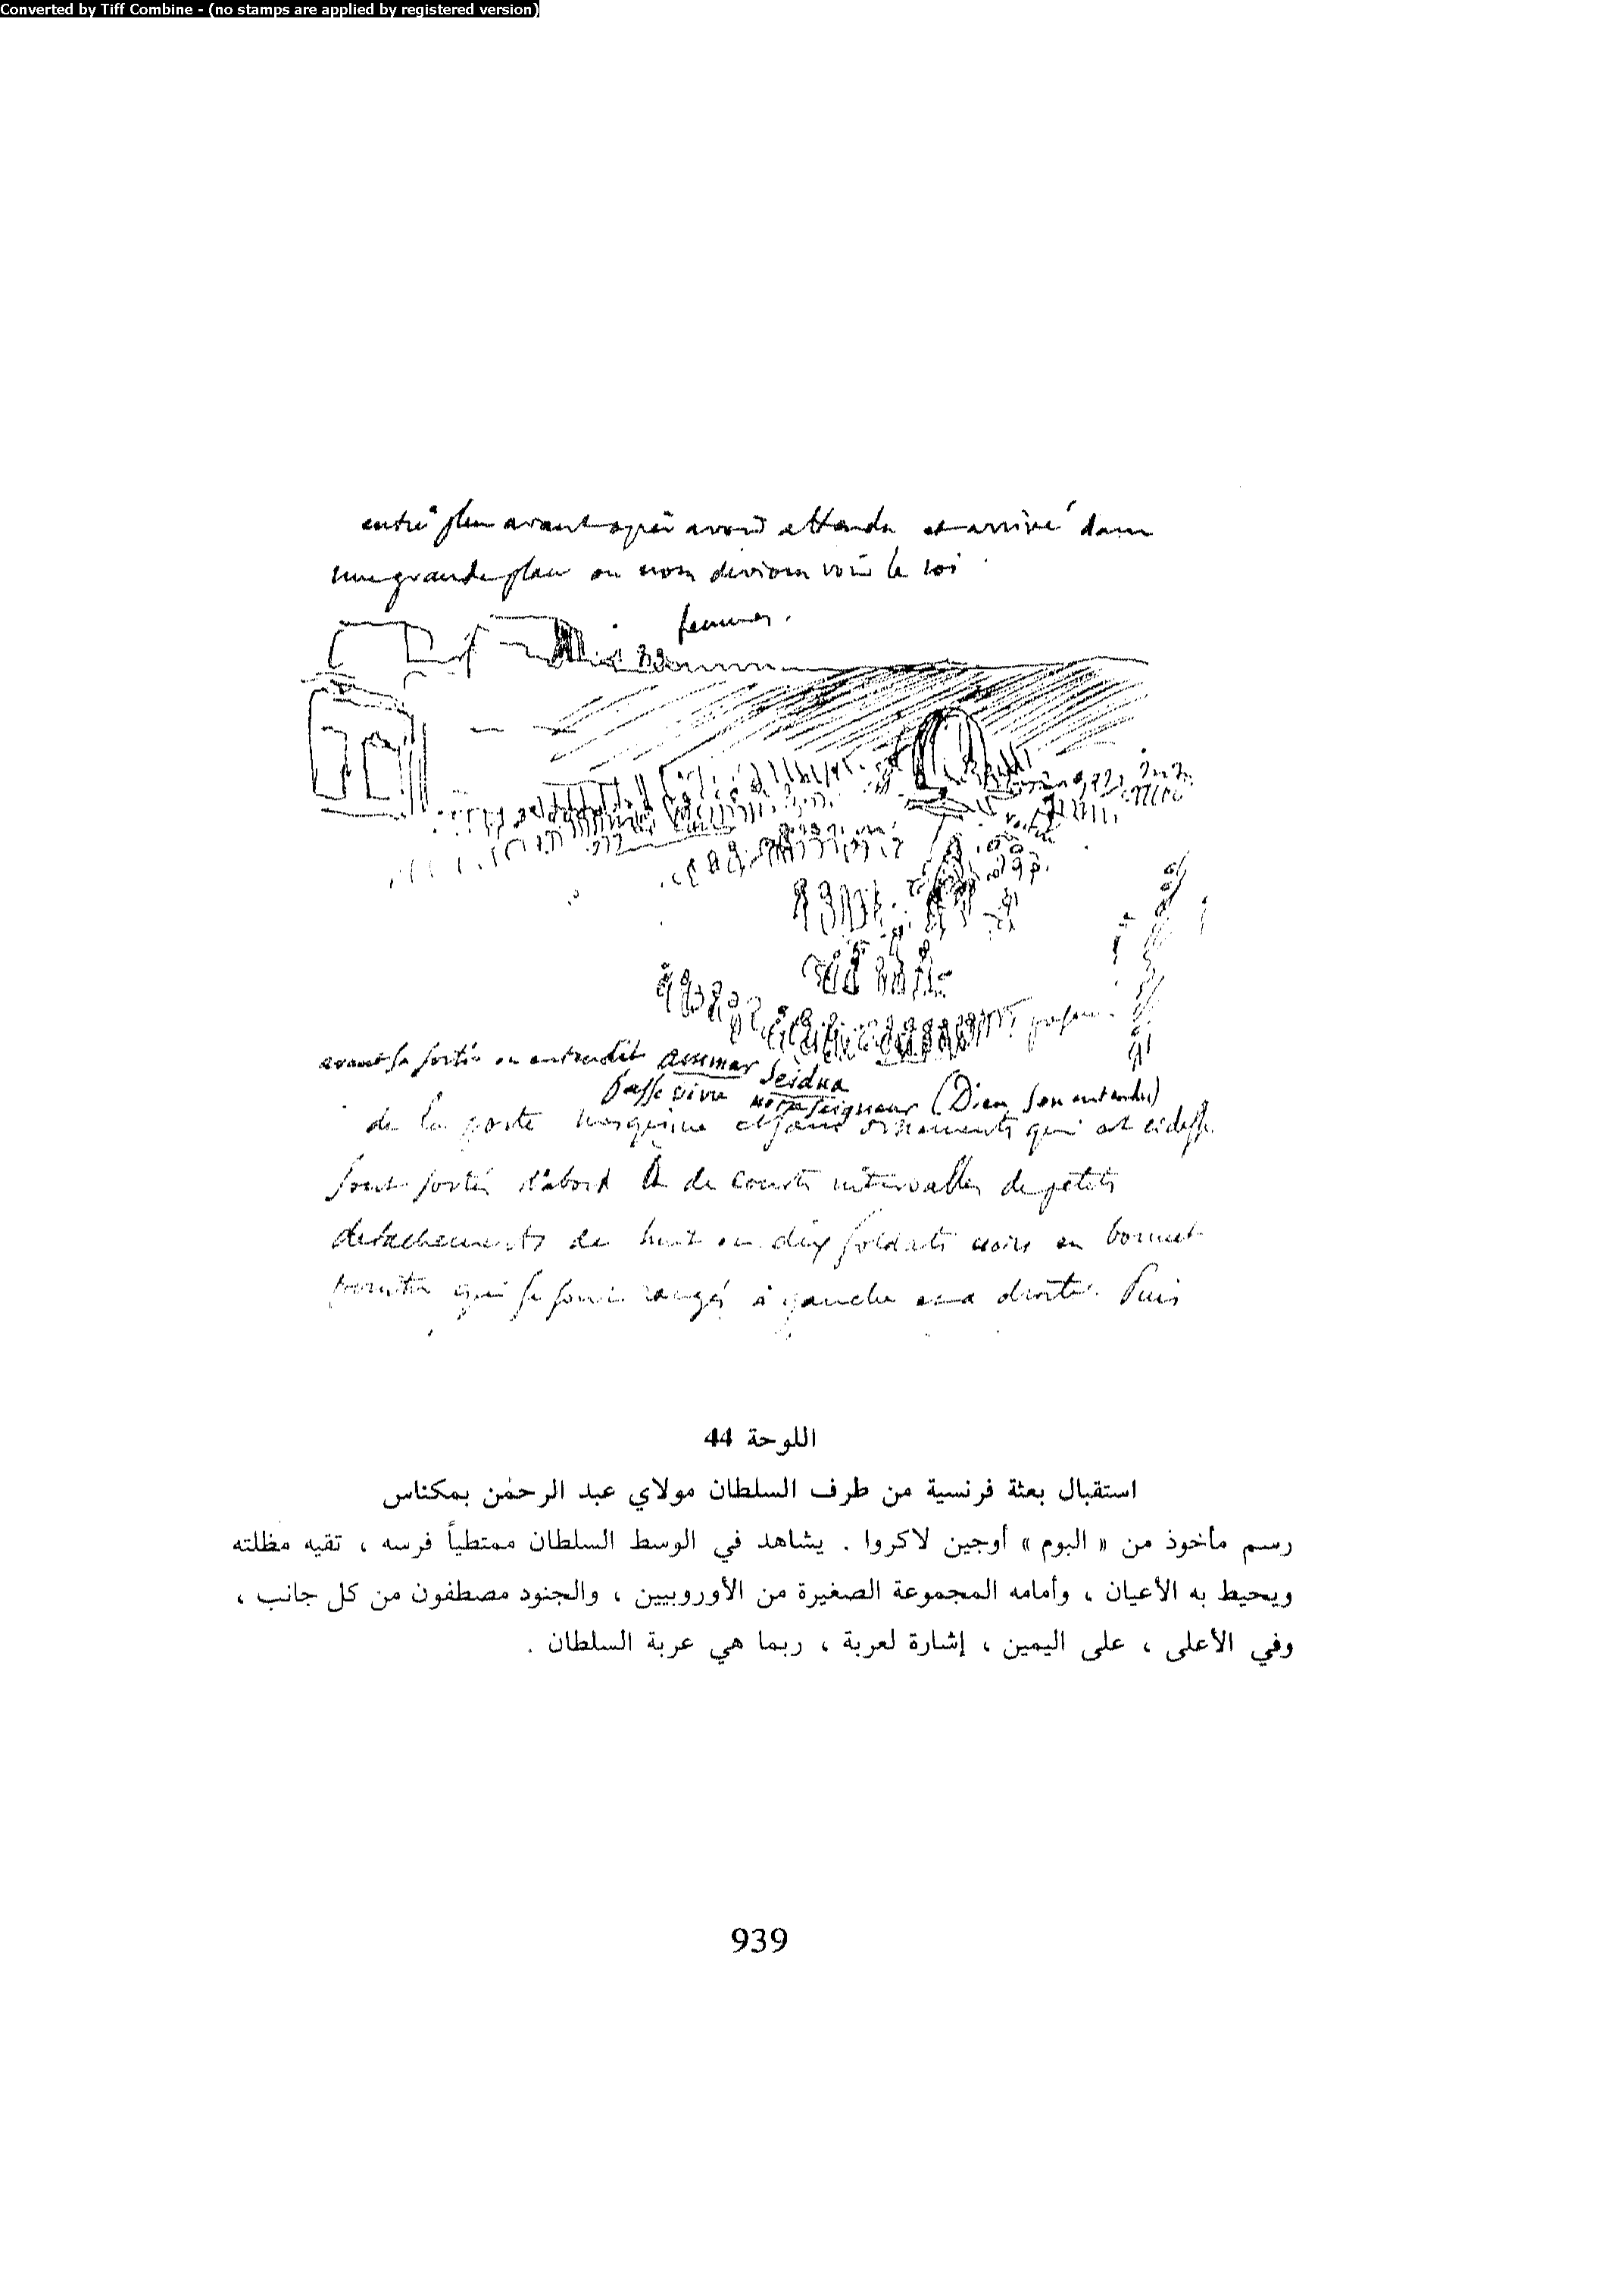 Converted by Tiff Combine - (no stamps are applied by registered version)
entré plus avant après avoir attendu et arrivé dans
une grande place où nous devions voir le roi
femmes.
voiture
avant sa sortie on entendit ammar Seidna
Passe vivre notre seigneur (Dieu sous entendu)
de la porte mesquine et sans ornements qui est
sont sortis d'abord à de courts intervalles de petits
détachements de huit ou dix soldats noirs en bonnet
pointu qui se sont rangés à gauche et à droite. Puis
اللوحة 44
استقبال بعثة فرنسية من طرف السلطان مولاي عبد الرحمٰن بمكناس
رسم مأخوذ من « البوم » أوجين لاكروا . يشاهد في الوسط السلطان ممتطياً فرسه ، تقيه مظلته
ويحيط به الأعيان ، وأمامه المجموعة الصغيرة من الأوروبيين ، والجنود مصطفون من كل جانب ،
وفي الأعلى ، على اليمين ، إشارة لعربة ، ربما هي عربة السلطان .
939